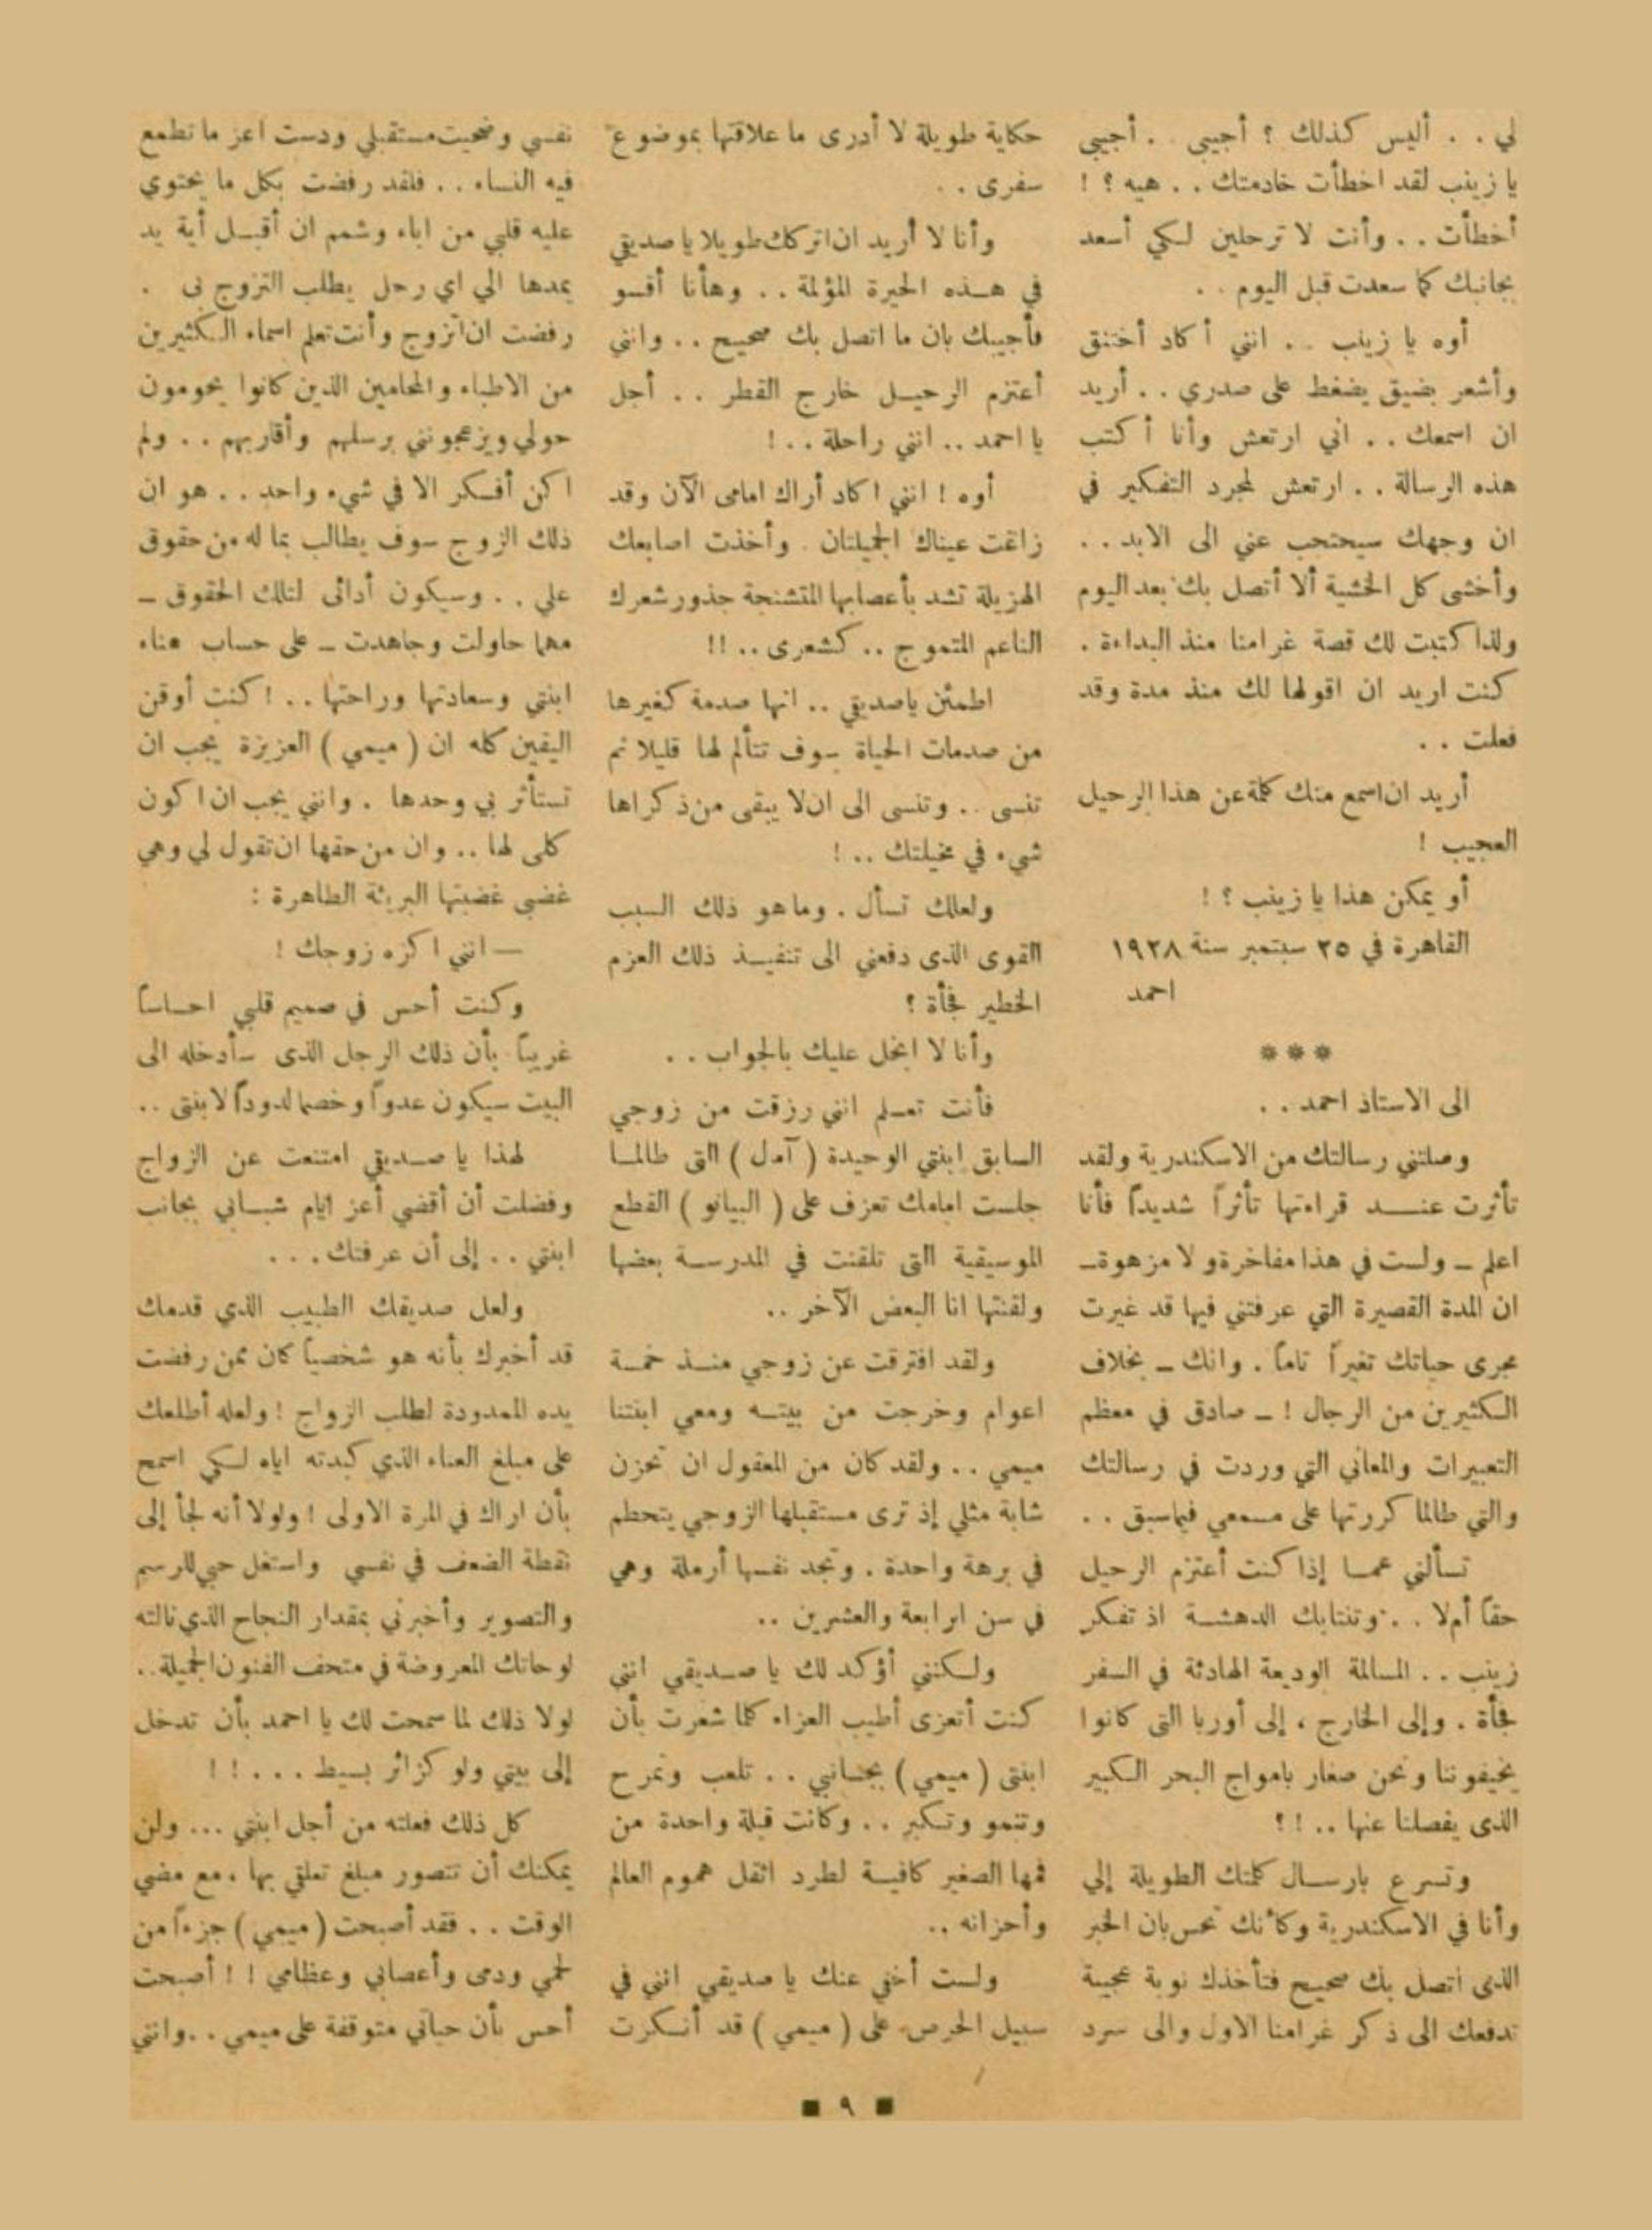 لي . . أليس كذلك ؟ أجيبى . . أجيبي
يا زينب لقد اخطأت خادمتك . . هيه ؟ !
أخطأت . . وأنت لا ترحلين لكي أسعد
بجانبك كما سعدت قبل اليوم . .
أوه يا زينب . . انني أكاد أختنق
وأشعر بضيق يضغط على صدري . . أريد
ان اسمعك . . اني ارتعش وأنا أكتب
هذه الرسالة . . ارتعش لمجرد التفكير في
ان وجهك سيحتجب عني الى الابد . .
وأخشى كل الخشية ألا أتصل بك بعد اليوم
ولذا كتبت لك قصة غرامنا منذ البداءة .
كنت اريد ان اقولها لك منذ مدة وقد
فعلت . .
أريد ان اسمع منك كلمة عن هذا الرحيل
العجيب !
أو يمكن هذا يا زينب ؟ !
القاهرة في ٢٥ سبتمبر سنة ١٩٢٨
احمد
***
الى الاستاذ احمد . .
وصلتني رسالتك من الاسكندرية ولقد
تأثرت عنـد قراءتها تأثراً شديداً فأنا
اعلم ــ ولست في هذا مفاخرة ولا مزهوة ــ
ان المدة القصيرة التي عرفتني فيها قد غيرت
مجرى حياتك تغيراً تاماً . وانك ــ بخلاف
الكثيرين من الرجال ! ــ صادق في معظم
التعبيرات والمعاني التي وردت في رسالتك
والتي طالما كررتها على مسمعي فيما سبق . .
تسألني عمـا إذا كنت أعتزم الرحيل
حقاً أم لا . . وتنتابك الدهشـة اذ تفكر
زينب . . المسالمة الوديعة الهادئة في السفر
فجأة . وإلى الخارج ، إلى أوربا التى كانوا
يخيفوننا ونحن صغار بامواج البحر الكبير
الذى يفصلنا عنها .. ! ؟
وتسرع بارسـال كلمتك الطويلة إلي
وأنا في الاسكندرية وكأنك تحس بان الخبر
الذى اتصل بك صحيح فتأخذك نوبة عجيبة
تدفعك الى ذكر غرامنا الاول والى سرد
حكاية طويلة لا أدرى ما علاقتها بموضوع
سفرى . .
وأنا لا أريد ان اتركك طويلا يا صديقي
في هـذه الحيرة المؤلمة . . وهأنا أقسو
فأجيبك بان ما اتصل بك صحيح . . وانني
أعتزم الرحيـل خارج القطر . . أجل
يا احمد .. انني راحلة . . !
أوه ! انني اكاد أراك امامى الآن وقد
زاغت عيناك الجميلتان . وأخذت اصابعك
الهزيلة تشد بأعصابها المتشنجة جذور شعرك
الناعم المتموج .. كشعرى .. !!
اطمئن ياصديقي .. انها صدمة كغيرها
من صدمات الحياة سوف تتألم لها قليلا ثم
تنسى .. وتنسى الى ان لا يبقى من ذكراها
شيء في مخيلتك .. !
ولعلك تسأل . وما هو ذلك السبب
القوى الذى دفعني الى تنفيـذ ذلك العزم
الخطير فجأة ؟
وأنا لا ابخل عليك بالجواب . .
فأنت تعـلم انني رزقت من زوجي
السابق ابنتي الوحيدة ( آمال ) التى طالمـا
جلست امامك تعزف على ( البيانو ) القطع
الموسيقية التى تلقنت في المدرسـة بعضها
ولقنتها انا البعض الآخر ..
ولقد افترقت عن زوجي منـذ خمـة
اعوام وخرجت من بيتـه ومعي ابنتنا
ميمي . . ولقد كان من المعقول ان تحزن
شابة مثلي إذ ترى مستقبلها الزوجي يتحطم
في برهة واحدة . وتجد نفسها أرملة وهي
في سن الرابعة والعشرين ..
ولكنني أؤكد لك يا صـديقي انني
كنت أتعزى أطيب العزاء كلما شعرت بأن
ابنتى ( ميمي ) بجـانبي . . تلعب وتمرح
وتنمو وتكبر . . وكانت قبلة واحدة من
فمها الصغير كافيـة لطرد اثقل هموم العالم
وأحزانه ..
ولست أخفي عنك يا صديقي انني في
سبيل الحرص على ( ميمي ) قد أنكرت
نفسي وضحيت مستقبلي ودست اعز ما تطمع
فيه النساء . . فلقد رفضت بكل ما يحتوي
عليه قلبي من اباء وشمم ان أقبـل أية يد
يمدها الي اي رجل يطلب التزوج بى .
رفضت ان اتزوج وأنت تعلم اسماء الكثيرين
من الاطباء والمحامين الذين كانوا يحومون
حولي ويزعجونني برسلهم وأقاربهم . . ولم
اكن أفكر الا في شيء واحد . . هو ان
ذلك الزوج سوف يطالب بما له من حقوق
علي . . وسيكون أدائى لتلك الحقوق ــ
مهما حاولت وجاهدت ــ على حساب هناء
ابنتي وسعادتها وراحتها . . ! كنت أوقن
اليقين كله ان ( ميمي ) العزيزة يجب ان
تستأثر بي وحدها . وانني يجب ان اكون
كلى لها .. وان من حقها ان تقول لي وهي
غضبى غضبتها البريئة الطاهرة :
ــ انني اكره زوجك !
وكنت أحس في صميم قلبي احساساً
غريباً بأن ذلك الرجل الذى سأدخله الى
البيت سيكون عدواً وخصما لدوداً لابنتى ..
لهذا يا صـديقي امتنعت عن الزواج
وفضلت أن أقضي أعز ايام شبـابي بجانب
ابنتي . . إلى أن عرفتك . . .
ولعل صديقك الطبيب الذي قدمك
قد أخبرك بأنه هو شخصياً كان ممن رفضت
يده الممدودة لطلب الزواج ! ولعله أطلعك
على مبلغ العناء الذي كبدته اياه لكي اسمح
بأن اراك في المرة الاولى ! ولولا أنه لجأ إلى
نقطة الضعف في نفسي واستغل حبي للرسم
والتصوير وأخبرني بمقدار النجاح الذي نالته
لوحاتك المعروضة في متحف الفنون الجميلة..
لولا ذلك لما سمحت لك يا احمد بأن تدخل
إلى بيتي ولو كزائر بسيط . . . ! !
كل ذلك فعلته من أجل ابنتي ... ولن
يمكنك أن تتصور مبلغ تعلقي بها ، مع مضي
الوقت . . فقد أصبحت ( ميمي ) جزءاً من
لحمي ودمى وأعصابي وعظامي ! ! أصبحت
أحس بأن حياتي متوقفة على ميمي . . وانني
٩